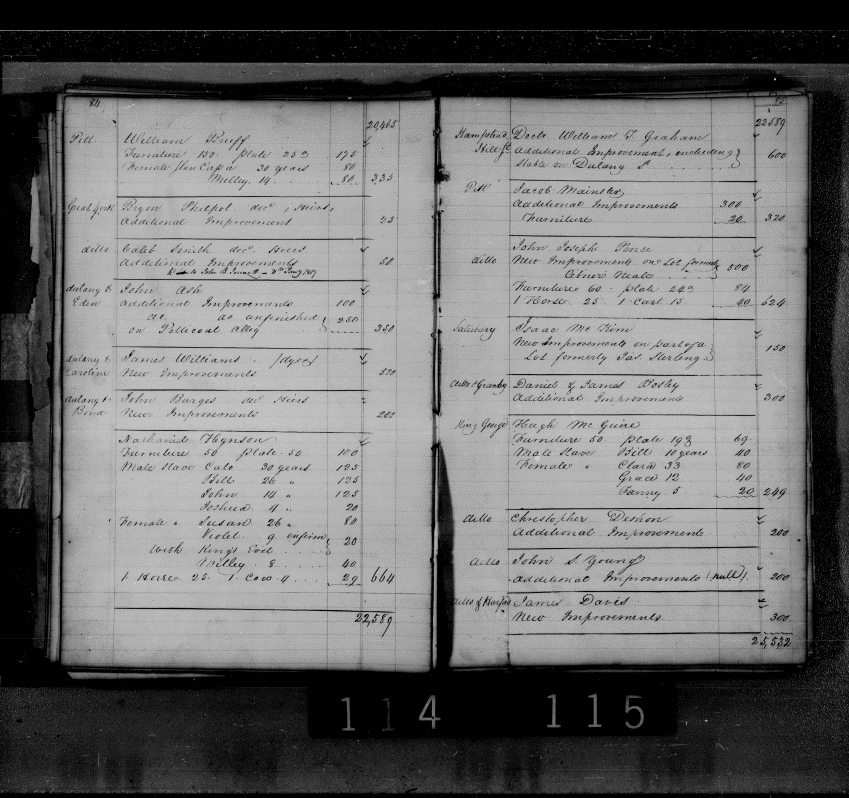 84
20,465
Pitt William Bruff
Furniture 150 plate 25 175
Female slave Capa 30 years 80
Milley 14 80 335
Great York Bryon Philpot decd Heirs,
Additional Improvement 25
ditto Caleb Smith decd Heirs
Additional Improvements 50
to John B.
dulany & John Ash
Eden Additional Improvements 100
do do unfinished } 250
on Petticoat Alley 350
dulany & James Williams (dyer)
Caroline New Improvements 520
dulany & John Barges decd Heirs
Bond New Improvements 205
Nathaniel Hynson
Furniture 50 plate 50 100
Male Slave Cato 30 years 125
Bill 26 " 125
John 14 " 125
Joshua 4 " 20
Female " Susan 26 " 80
Violet 9 infirm } 20
with Kings Evil
Milley 8 40
1 Horse 25 1 Cow 4 29 664
22,589
85
22589
Hampstead Doctr William T. Graham
Hill St additional Improvement, including }
Stable on Dulany St 600
Pitt Jacob Mainster
Additional Improvements 300
Furniture 20 320
John Joseph Pence
ditto New Improvements on Lot formerly } 500
Abner Neale
Furniture 60 plate 24 84
1 Horse 25 1 Cart 15 40 624
Salisbury Isaac Mc Kim
New Improvements on part of a }
Lot formerly Jas. Sterling 150
ditto & Granby Daniel & James Mosby
Additional Improvements 300
King George Hugh Mc Guire
Furniture 50 plate 19 69
Male Slave Bill 10 years 40
Female " Clara 33 80
Grace 12 40
Fanny 5 20 249
ditto Christopher Deshon
Additional Improvements 200
ditto John S. Young
additional Improvements (null) 200
ditto & Harford James Davis
New Improvements 300
25,532
114 115